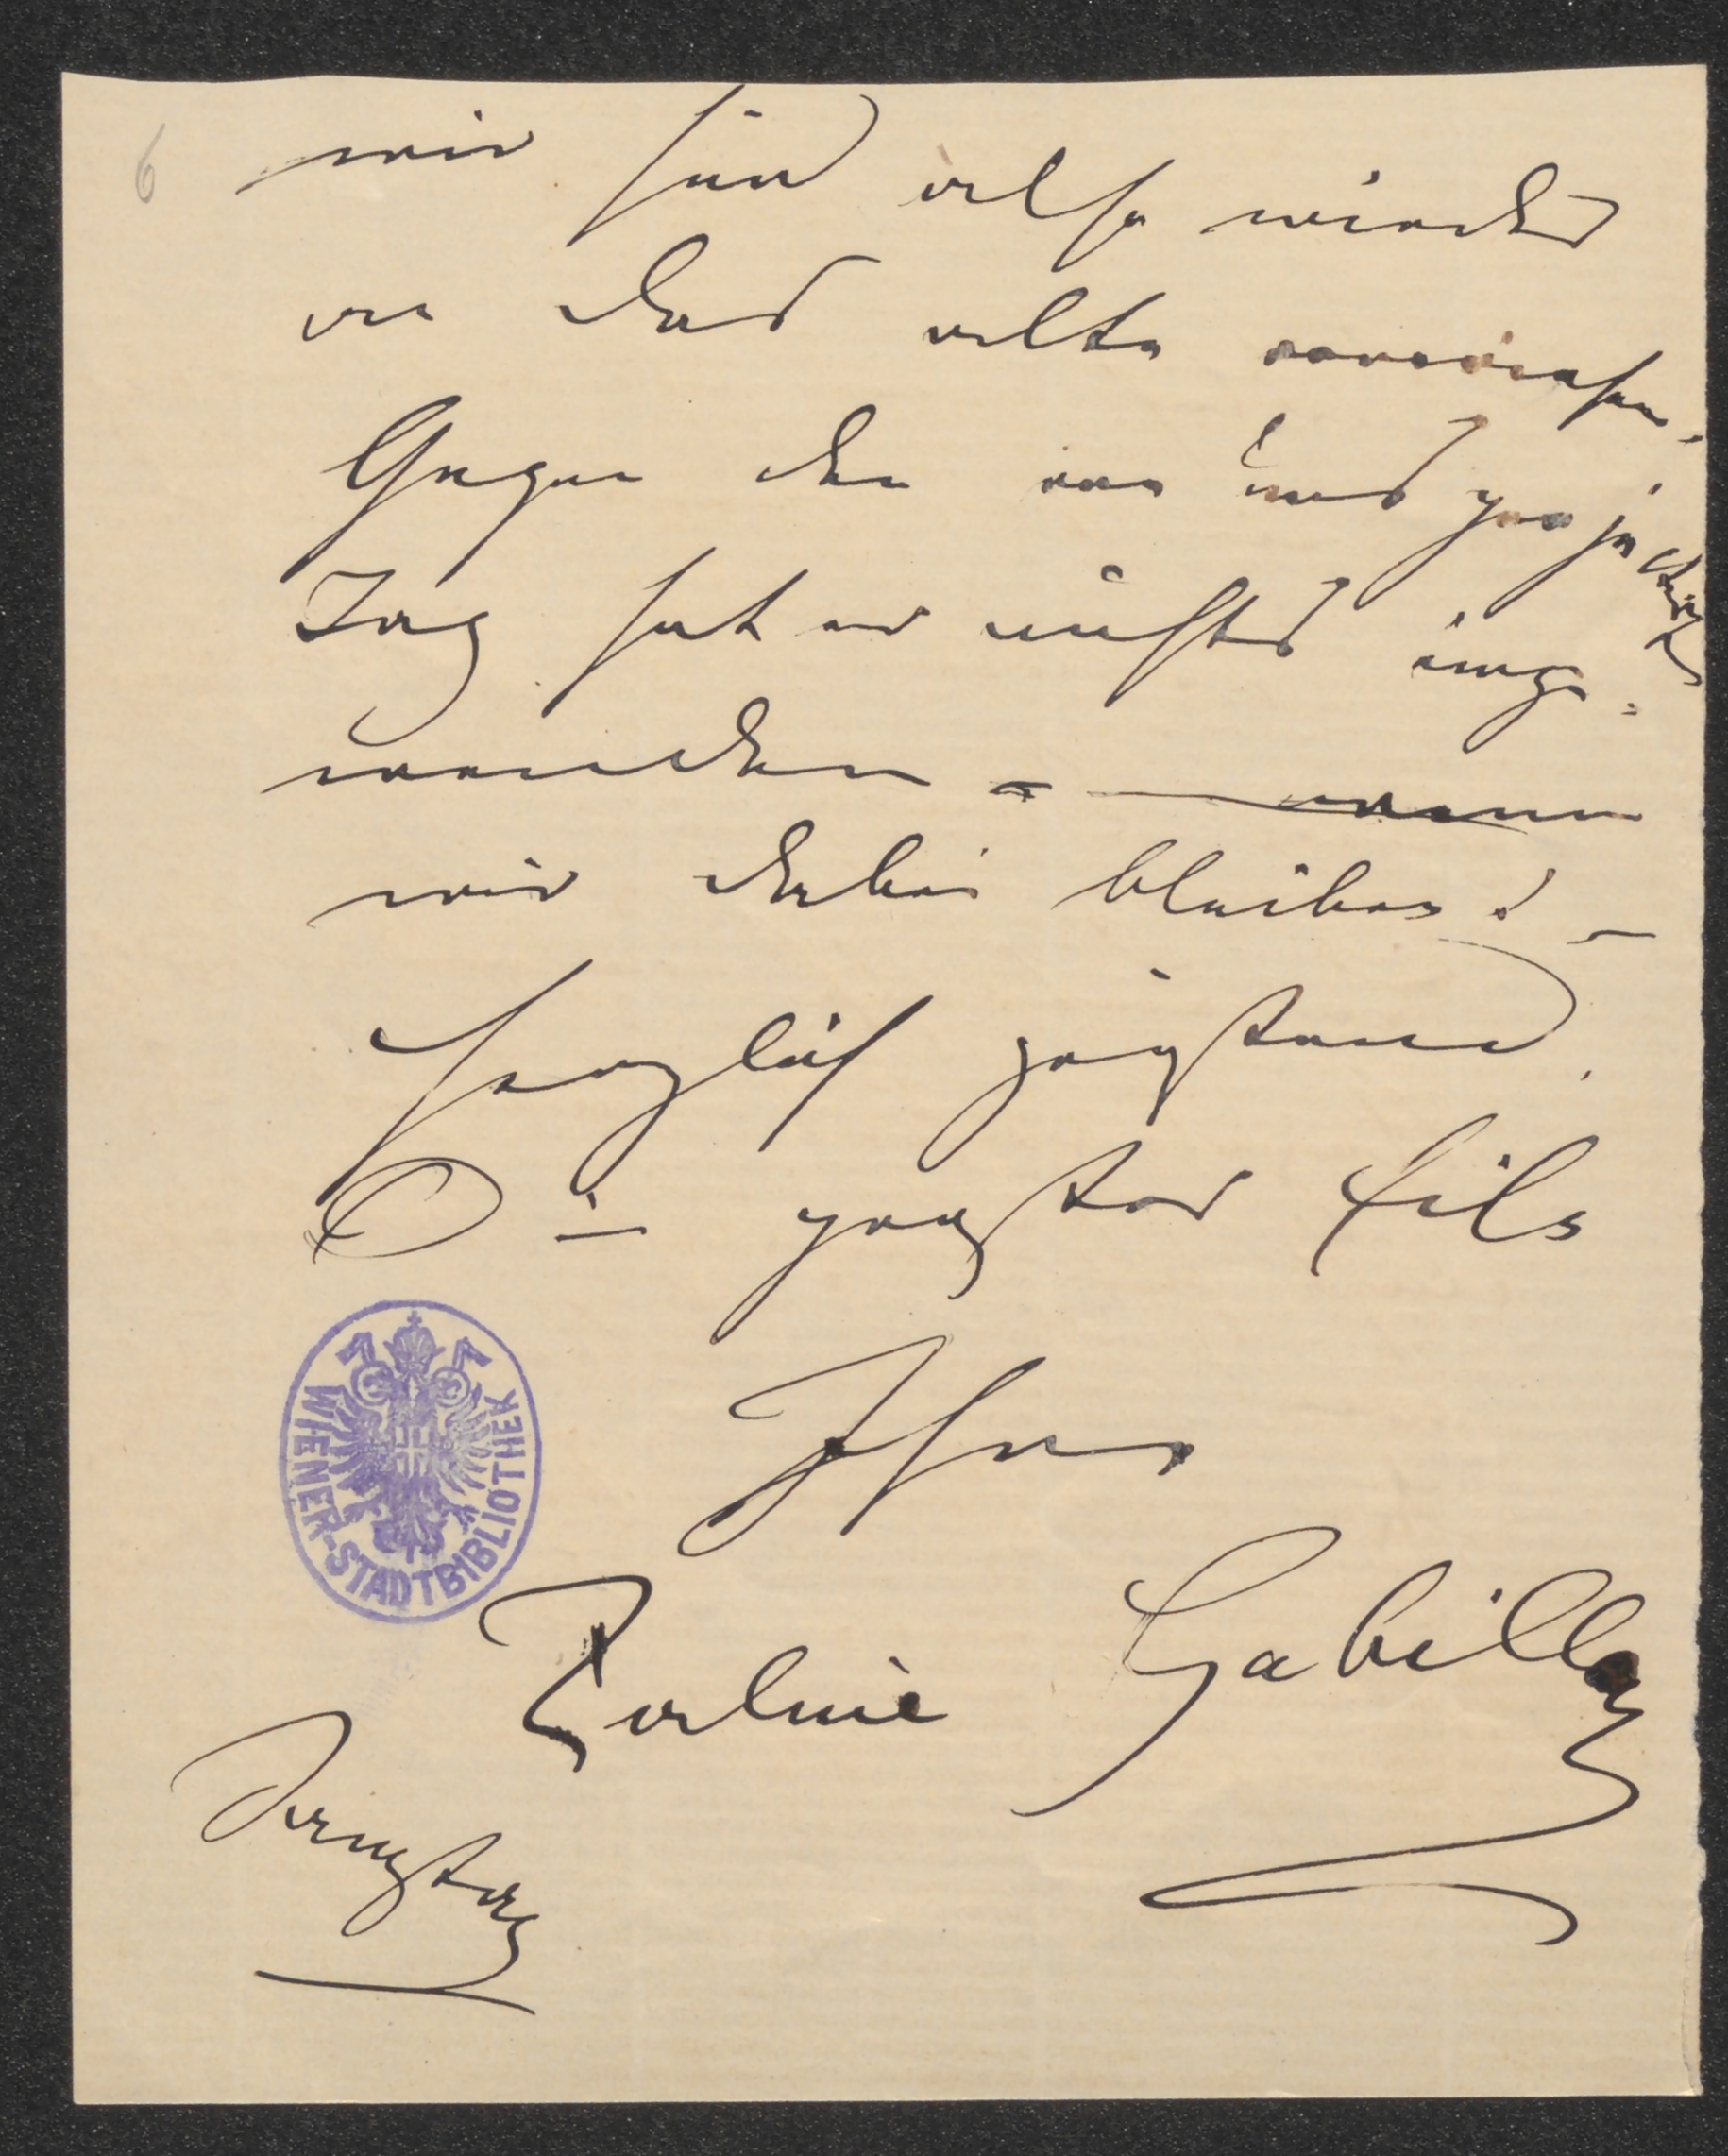 6
wir sind also wieder
an das alte verwiesen.
Gegen den von uns projectirten
Tag hat er nichts einge-
wenden – wenn
wir dabei bleiben! –
Herzlich grüßend
in größter Eile
Ihre
Zerline Gabillon
Samstag
WIENER-STADTBIBLIOTHEK